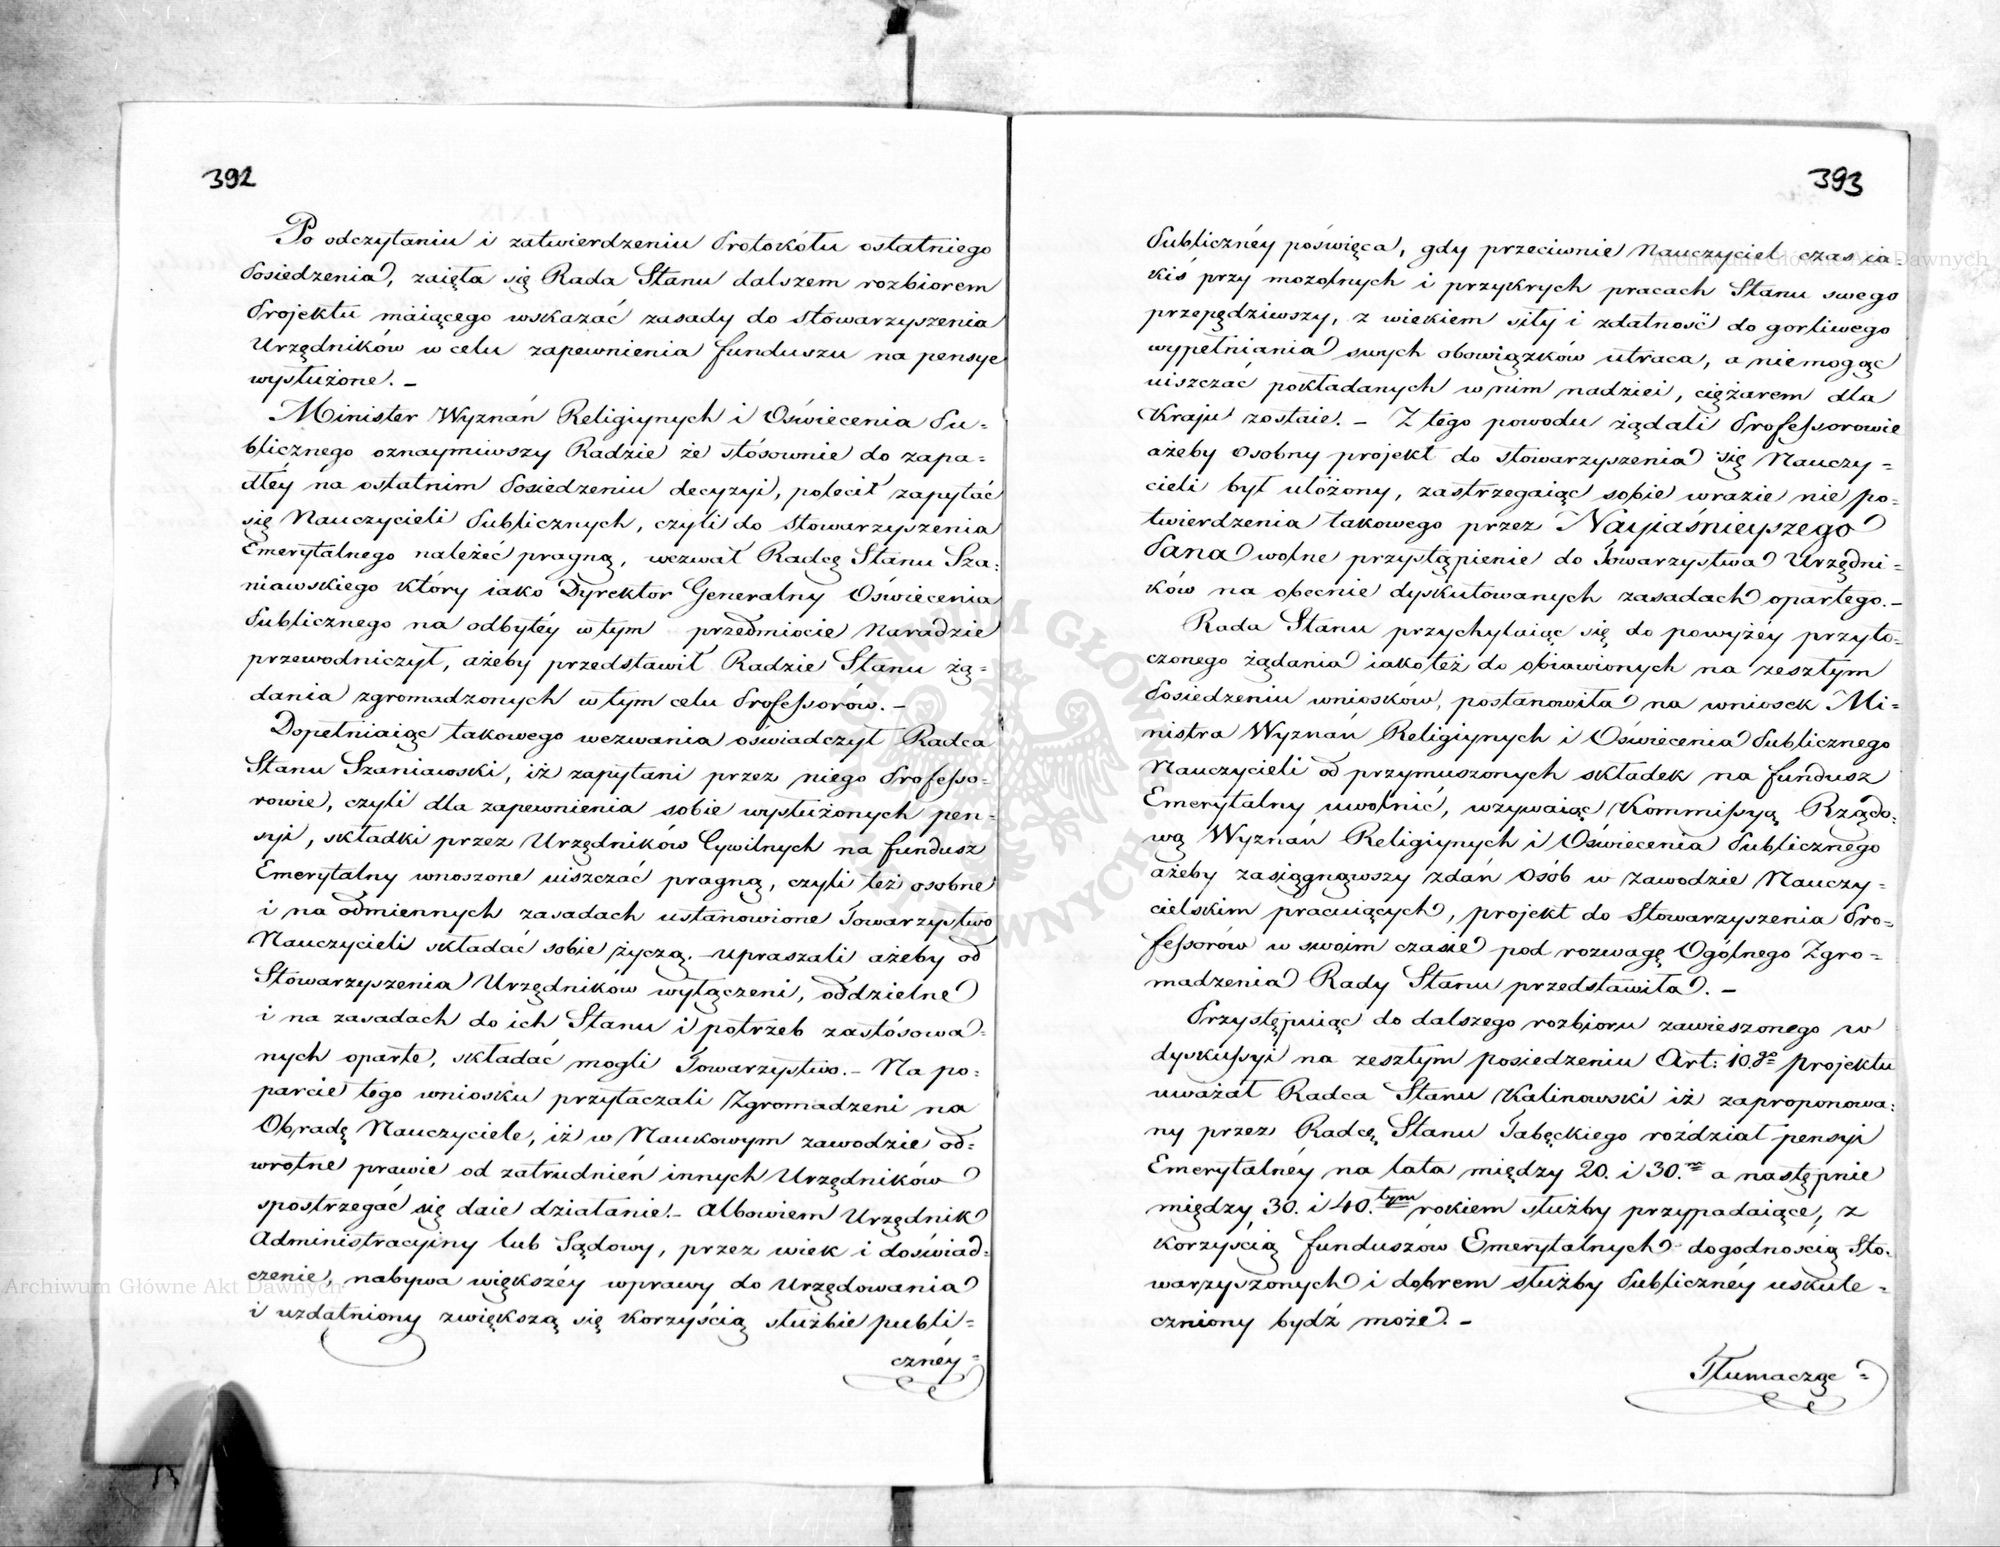 392
Po odczytaniu i zatwierdzeniu Protokółu ostatniego
Posiedzenia, zaięła się Rada Stanu dalszem rozbiorem
Projektu maiącego wskazać zasady do stowarzyszenia
Urzędników w celu zapewnienia funduszu na pensye
wysłużone. –
Minister Wyznań Religiynych i Oświecenia Pu-
blicznego oznaymiwszy Radzie że stósownie do zapa-
dłéy na ostatnim Posiedzeniu decyzyi, polecił zapytać
się Nauczycieli Publicznych, czyli do stowarzyszenia
Emerytalnego należeć pragną, wezwał Radcę Stanu Sza-
niawskiego który iako Dyrektor Generalny Oświecenia
Publicznego na odbytéy w tym przedmiocie Naradzie
przewodniczył, ażeby przedstawił Radzie Stanu żą-
dania zgromadzonych w tym celu Professorów. –
Dopełniaiąc takowego wezwania oświadczył Radca
Stanu Szaniawski, iż zapytani przez niego Professo-
rowie, czyli dla zapewnienia sobie wysłużonych pen-
syi, składki przez Urzędników Cywilnych na fundusz
Emerytalny wnoszone uiszczać pragną, czyli też osobne
i na odmiennych zasadach ustanowione Towarzystwo
Nauczycieli składać sobie życzą. – upraszali ażeby od
Stowarzyszenia Urzędników wyłączeni, oddzielne
i na zasadach do ich Stanu i potrzeb zastósowa-
nych oparte, składać mogli Towarzystwo. – Na po-
parcie tego wniosku przytaczali Zgromadzeni na
Obradę Nauczyciele, iż w Naukowym zawodzie od-
wrotne prawie od zatrudnień innych Urzędników
spostrzegać się daie działanie. – Albowiem Urzędnik
Administracyiny lub Sądowy, przez wiek i doświad-
czenie, nabywa większéy wprawy do Urzędowania
i uzdatniony zwiększą się korzyścią służbie publi-
cznéy
393
Publicznéy poświęca, gdy przeciwnie Nauczyciel czas ia-
kiś przy mozolnych i przykrych pracach Stanu swego
przepędziwszy, z wiekiem siły i zdatność do gorliwego
wypełniania swych obowiązków utraca, a niemogąc
uiszczać pokładanych w nim nadziei, ciężarem dla
Kraju zostaie. – Z tego powodu żądali Professorowie
ażeby osobny projekt do stowarzyszenia się Nauczy-
cieli był ułożony, zastrzegaiąc sobie w razie nie po-
twierdzenia takowego przez Nayjaśnieyszego
Pana wolne przystąpienie do Towarzystwa Urzędni-
ków na obecnie dyskutowanych zasadach opartego. –
Rada Stanu przychylaiąc się do powyżéy przyto-
czonego żądania iakoteż do obiawionych na zeszłym
Posiedzeniu wniosków, postanowiła na wniosek Mi-
nistra Wyznań Religiynych i Oświecenia Publicznego
Nauczycieli od przymuszonych składek na fundusz
Emerytalny uwolnić, wzywaiąc Kommissyą Rządo-
wą Wyznań Religiynych i Oświecenia Publicznego
ażeby zasiągnąwszy zdań osób w zawodzie Nauczy-
cielskim pracuiących, projekt do Stowarzyszenia Pro-
fessorów w swoim czasie pod rozwagę Ogólnego Zgro-
madzenia Rady Stanu przedstawiła. –
Przystępuiąc do dalszego rozbioru zawieszonego w
dyskussyi na zeszłym posiedzeniu Art: 10.go projektu
uważał Radca Stanu Kalinowski iż zaproponowa-
ny przez Radcę Stanu Tabęckiego roździał pensyi
Emerytalnéy na lata między 20. i 30.m a następnie
między 30. i 40.tym rokiem służby przypadaiące, z
korzyścią funduszów Emerytalnych dogodnością Sto-
warzyszonych i dobrem służby Publicznéy uskute-
czniony bydź może. –
Tłumacząc
Archiwum Główne Akt Dawnych
Archiwum Główne Akt Dawnych